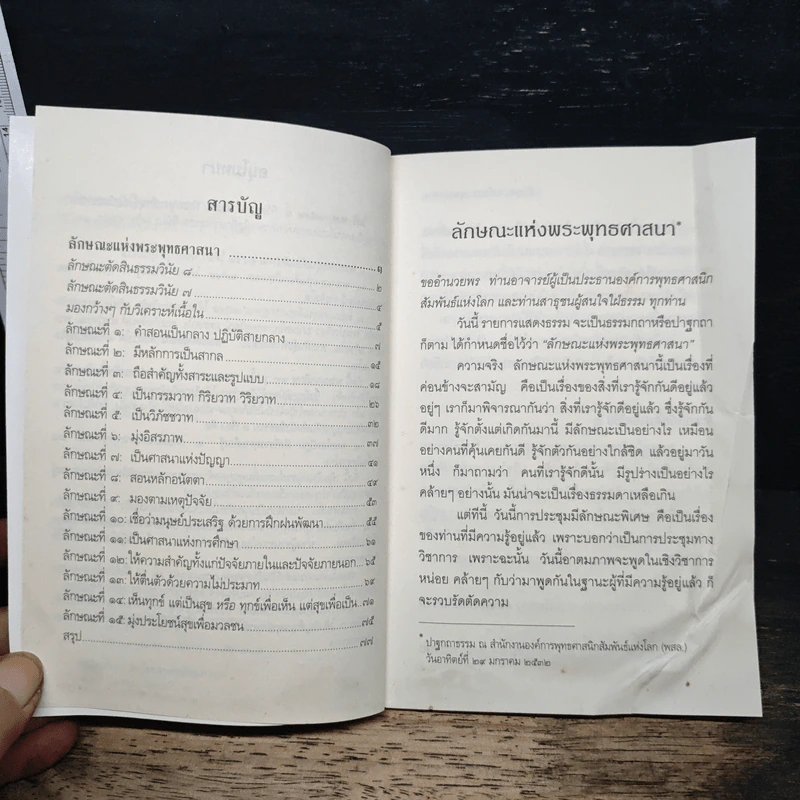 สารบัญ
ลักษณะแห่งพระพุทธศาสนา ๑
ลักษณะตัดสินธรรมวินัย ๘ ๒
ลักษณะตัดสินธรรมวินัย ๗ ๔
มองกว้างๆ กับวิเคราะห์เนื้อใน ๕
ลักษณะที่ ๑: คำสอนเป็นกลาง ปฏิบัติสายกลาง ๗
ลักษณะที่ ๒: มีหลักการเป็นสากล ๑๕
ลักษณะที่ ๓: ถือสำคัญทั้งสาระและรูปแบบ ๑๘
ลักษณะที่ ๔: เป็นกรรมวาท กิริยวาท วิริยวาท ๒๖
ลักษณะที่ ๕: เป็นวิภัชชวาท ๓๒
ลักษณะที่ ๖: มุ่งอิสรภาพ ๓๗
ลักษณะที่ ๗: เป็นศาสนาแห่งปัญญา ๔๑
ลักษณะที่ ๘: สอนหลักอนัตตา ๔๙
ลักษณะที่ ๙: มองตามเหตุปัจจัย ๕๓
ลักษณะที่ ๑๐: เชื่อว่ามนุษย์ประเสริฐ ด้วยการฝึกฝนพัฒนา ๕๕
ลักษณะที่ ๑๑: เป็นศาสนาแห่งการศึกษา ๖๑
ลักษณะที่ ๑๒: ให้ความสำคัญทั้งแก่ปัจจัยภายในและปัจจัยภายนอก ๖๕
ลักษณะที่ ๑๓: ให้ตื่นตัวด้วยความไม่ประมาท ๖๙
ลักษณะที่ ๑๔: เห็นทุกข์ แต่เป็นสุข หรือ ทุกข์เพื่อเห็น แต่สุขเพื่อเป็น ๗๑
ลักษณะที่ ๑๕: มุ่งประโยชน์สุขเพื่อมวลชน ๗๕
สรุป ๗๗
ลักษณะแห่งพระพุทธศาสนา*
ขออำนวยพร ท่านอาจารย์ผู้เป็นประธานองค์การพุทธศาสนิก
สัมพันธ์แห่งโลก และท่านสาธุชนผู้สนใจใฝ่ธรรม ทุกท่าน
วันนี้ รายการแสดงธรรม จะเป็นธรรมกถาหรือปาฐกถา
ก็ตาม ได้กำหนดชื่อไว้ว่า “ลักษณะแห่งพระพุทธศาสนา”
ความจริง ลักษณะแห่งพระพุทธศาสนานี้เป็นเรื่องที่
ค่อนข้างจะสามัญ คือเป็นเรื่องของสิ่งที่เรารู้จักกันดีอยู่แล้ว
อยู่ๆ เราก็มาพิจารณากันว่า สิ่งที่เรารู้จักดีอยู่แล้ว ซึ่งรู้จักกัน
ดีมาก รู้จักตั้งแต่เกิดกันมานี้ มีลักษณะเป็นอย่างไร เหมือน
อย่างคนที่คุ้นเคยกันดี รู้จักตัวกันอย่างใกล้ชิด แล้วอยู่มาวัน
หนึ่ง ก็มาถามว่า คนที่เรารู้จักดีนั้น มีรูปร่างเป็นอย่างไร
คล้ายๆ อย่างนั้น มันน่าจะเป็นเรื่องธรรมดาเหลือเกิน
แต่ทีนี้ วันนี้การประชุมมีลักษณะพิเศษ คือเป็นเรื่อง
ของท่านที่มีความรู้อยู่แล้ว เพราะบอกว่าเป็นการประชุมทาง
วิชาการ เพราะฉะนั้น วันนี้อาตมภาพจะพูดในเชิงวิชาการ
หน่อย คล้ายๆ กับว่ามาพูดกันในฐานะผู้ที่มีความรู้อยู่แล้ว ก็
จะรวบรัดตัดความ
* ปาฐกถาธรรม ณ สำนักงานองค์การพุทธศาสนิกสัมพันธ์แห่งโลก (พสล.)
วันอาทิตย์ที่ ๒๙ มกราคม ๒๕๓๒